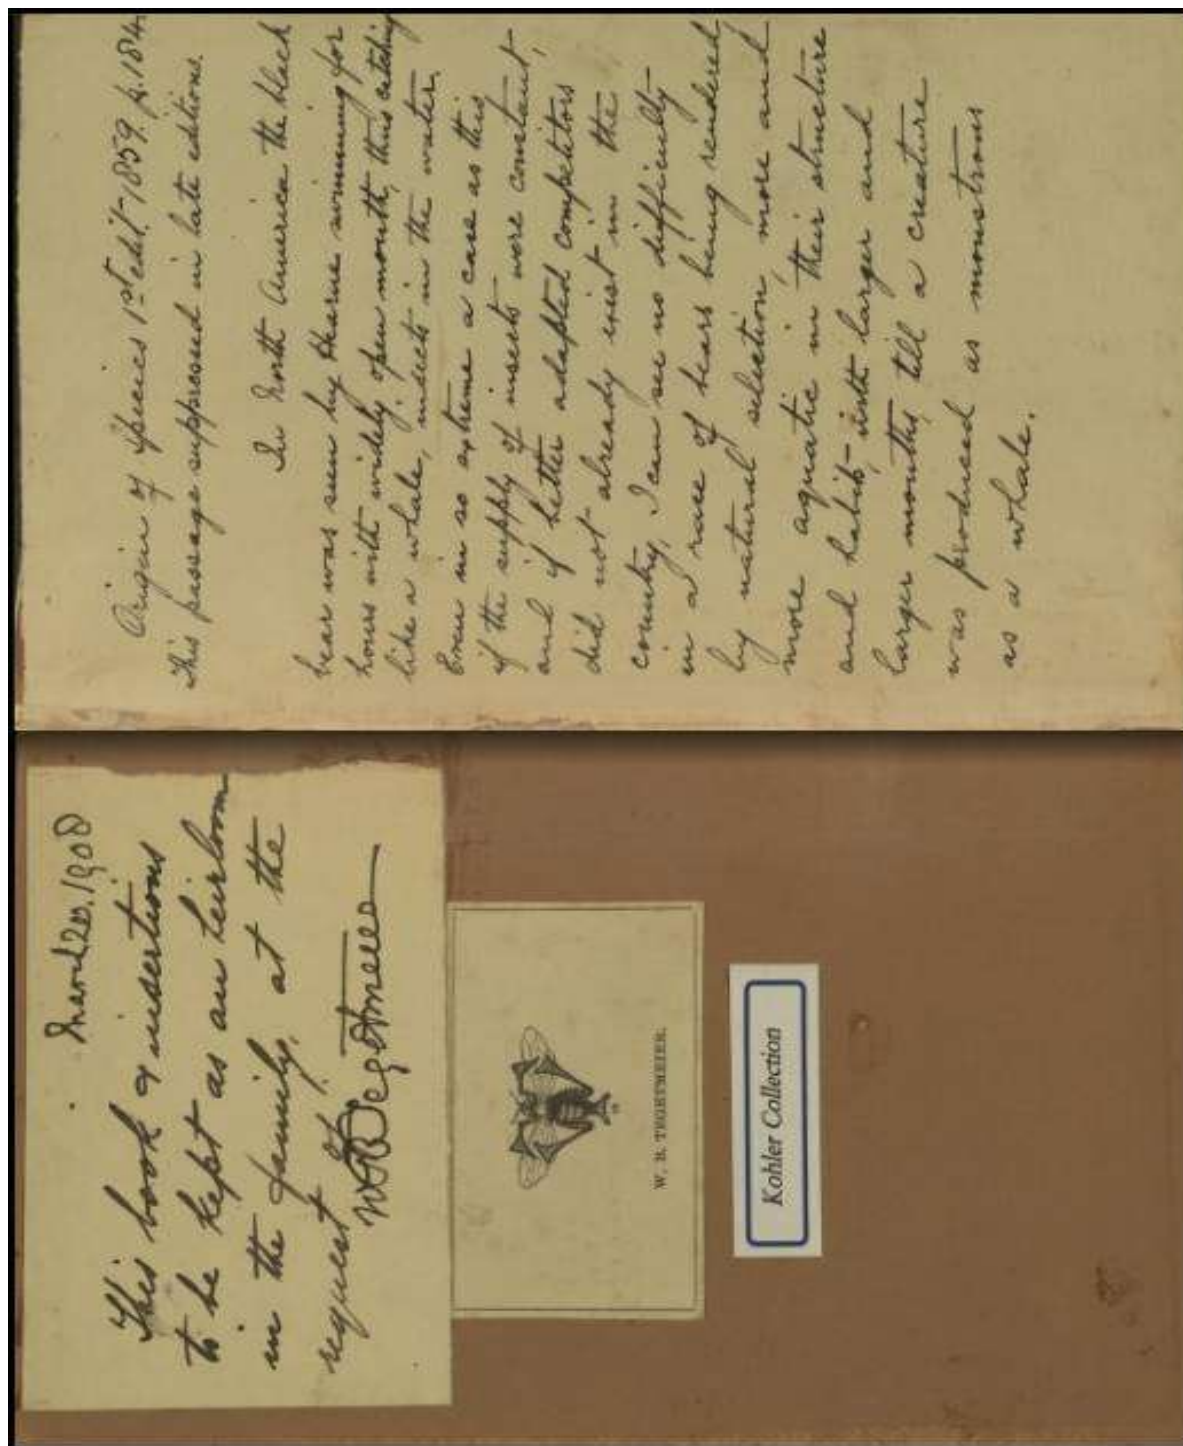 March 20. 1908
This book & insertions
to be kept as an heirloom
in the family, at the
request of
W B Tegetmeier
W. B. TEGETMEIER.
Kohler Collection
Origin of Species 1st edit - 1859. p. 184.
This passage suppressed in late editions.
In North America the black
bear was seen by Hearne swimming for
hours with widely open mouth, thus catching
like a whale, insects in the water.
Even in so extreme a case as this
if the supply of insects were constant,
and if better adapted competitors
did not already exist in the
country, I can see no difficulty
in a race of bears being rendered
by natural selection, more and
more aquatic in their structure
and habits - with larger and
larger mouths, till a creature
was produced as monstrous
as a whale.